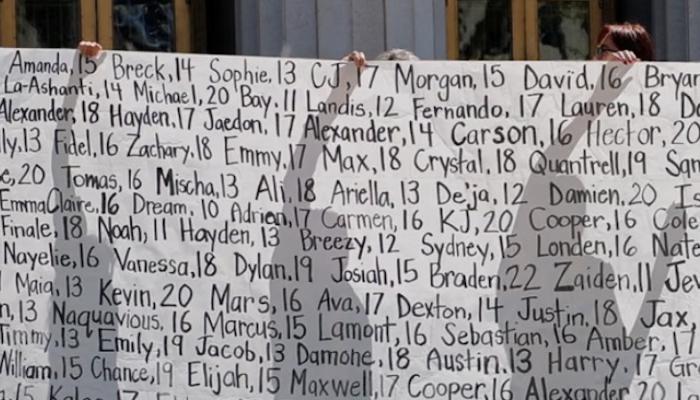 Amanda, 15 Breck, 14 Sophie, 13 CJ, 17 Morgan, 15 David, 16
La-Ashanti, 14 Michael, 20 Bay, 11 Landis, 12 Fernando, 17 Lauren, 18
Alexander, 18 Hayden, 17 Jaedon, 17 Alexander, 14 Carson, 16 Hector, 20
13 Fidel, 16 Zachary, 18 Emmy, 17 Max, 18 Crystal, 18 Quantrell, 19
20 Tomas, 16 Mischa, 13 Ali, 18 Ariella, 13 De'ja, 12 Damien, 20
EmmaClaire, 16 Dream, 10 Adrien, 17 Carmen, 16 KJ, 20 Cooper, 16 Cole
Finale, 18 Noah, 11 Hayden, 13 Breezy, 12 Sydney, 15 Londen, 16 Nate
Nayelie, 16 Vanessa, 18 Dylan, 19 Josiah, 15 Braden, 22 Zaiden, 11
Maia, 13 Kevin, 20 Mars, 16 Ava, 17 Dexton, 14 Justin, 18 Jax,
13 Naquavious, 16 Marcus, 15 Lamont, 16 Sebastian, 16 Amber, 17
Timmy, 13 Emily, 19 Jacob, 13 Damone, 18 Austin, 13 Harry, 17
William, 15 Chance, 19 Elijah, 15 Maxwell, 17 Cooper, 16 Alexander, 20
15